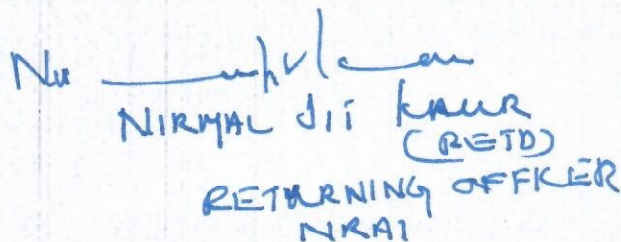 NIRMAL JIT KAUR
(RETD)
RETURNING OFFICER
NRAI